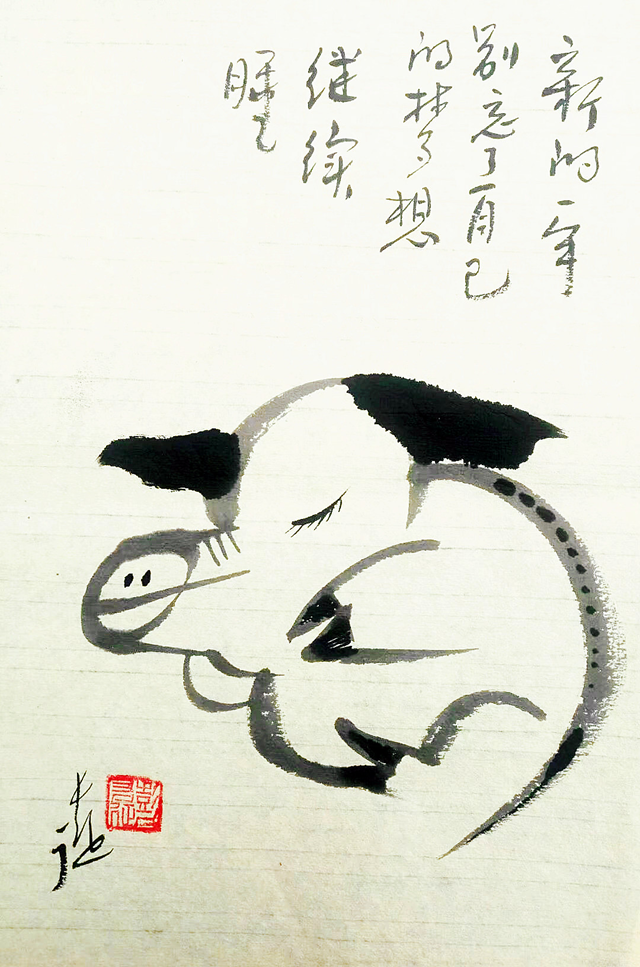 新的一年
别忘了自己
的梦想
继续
睡